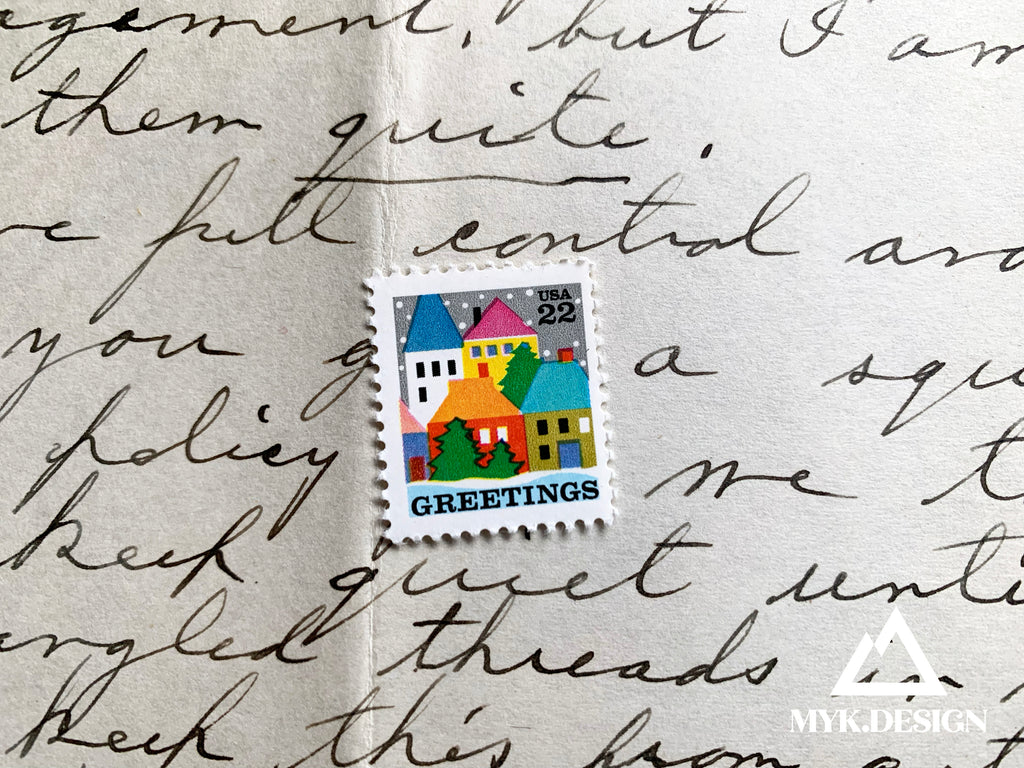 agement, but I am
them quite.
ve full control and
you g a squ
policy me t
keep quiet until
angled threads in
keep this from
USA
22
GREETINGS
MYK.DESIGN